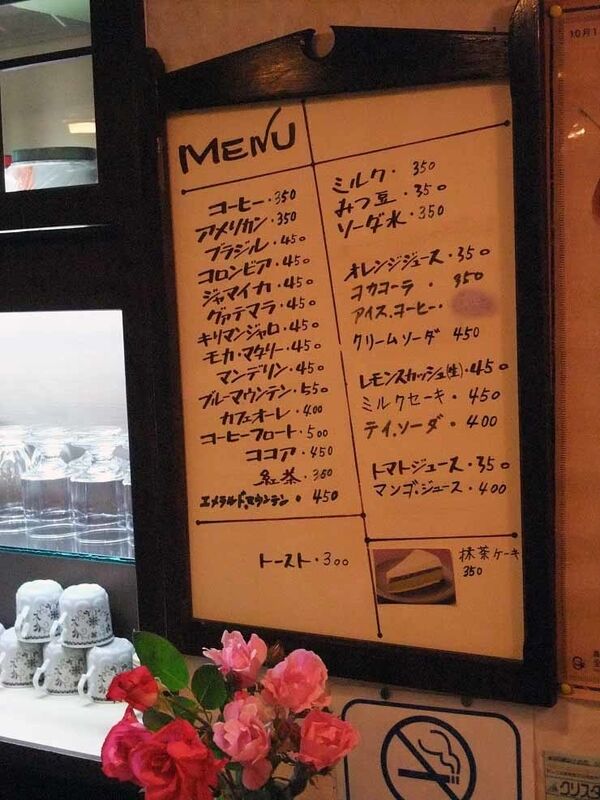 MENU
コーヒー・350
アメリカン・350
ブラジル・450
コロンビア・450
ジャマイカ・450
グァテマラ・450
キリマンジャロ・450
モカ・マタリー・450
マンデリン・450
ブルーマウンテン・550
カフェオーレ・400
コーヒーフロート・500
ココア・450
紅茶・350
エメラルド.マウンテン・450
トースト・300
ミルク・350
みつ豆・350
ソーダ水・350
オレンジジュース・350
コカコーラ・350
アイス.コーヒー・
クリームソーダ 450
レモンスカッシュ(生)・450
ミルクセーキ・450
ティ.ソーダ・400
トマトジュース・350
マンゴ.ジュース・400
抹茶ケーキ
350
10月1
クリスタ